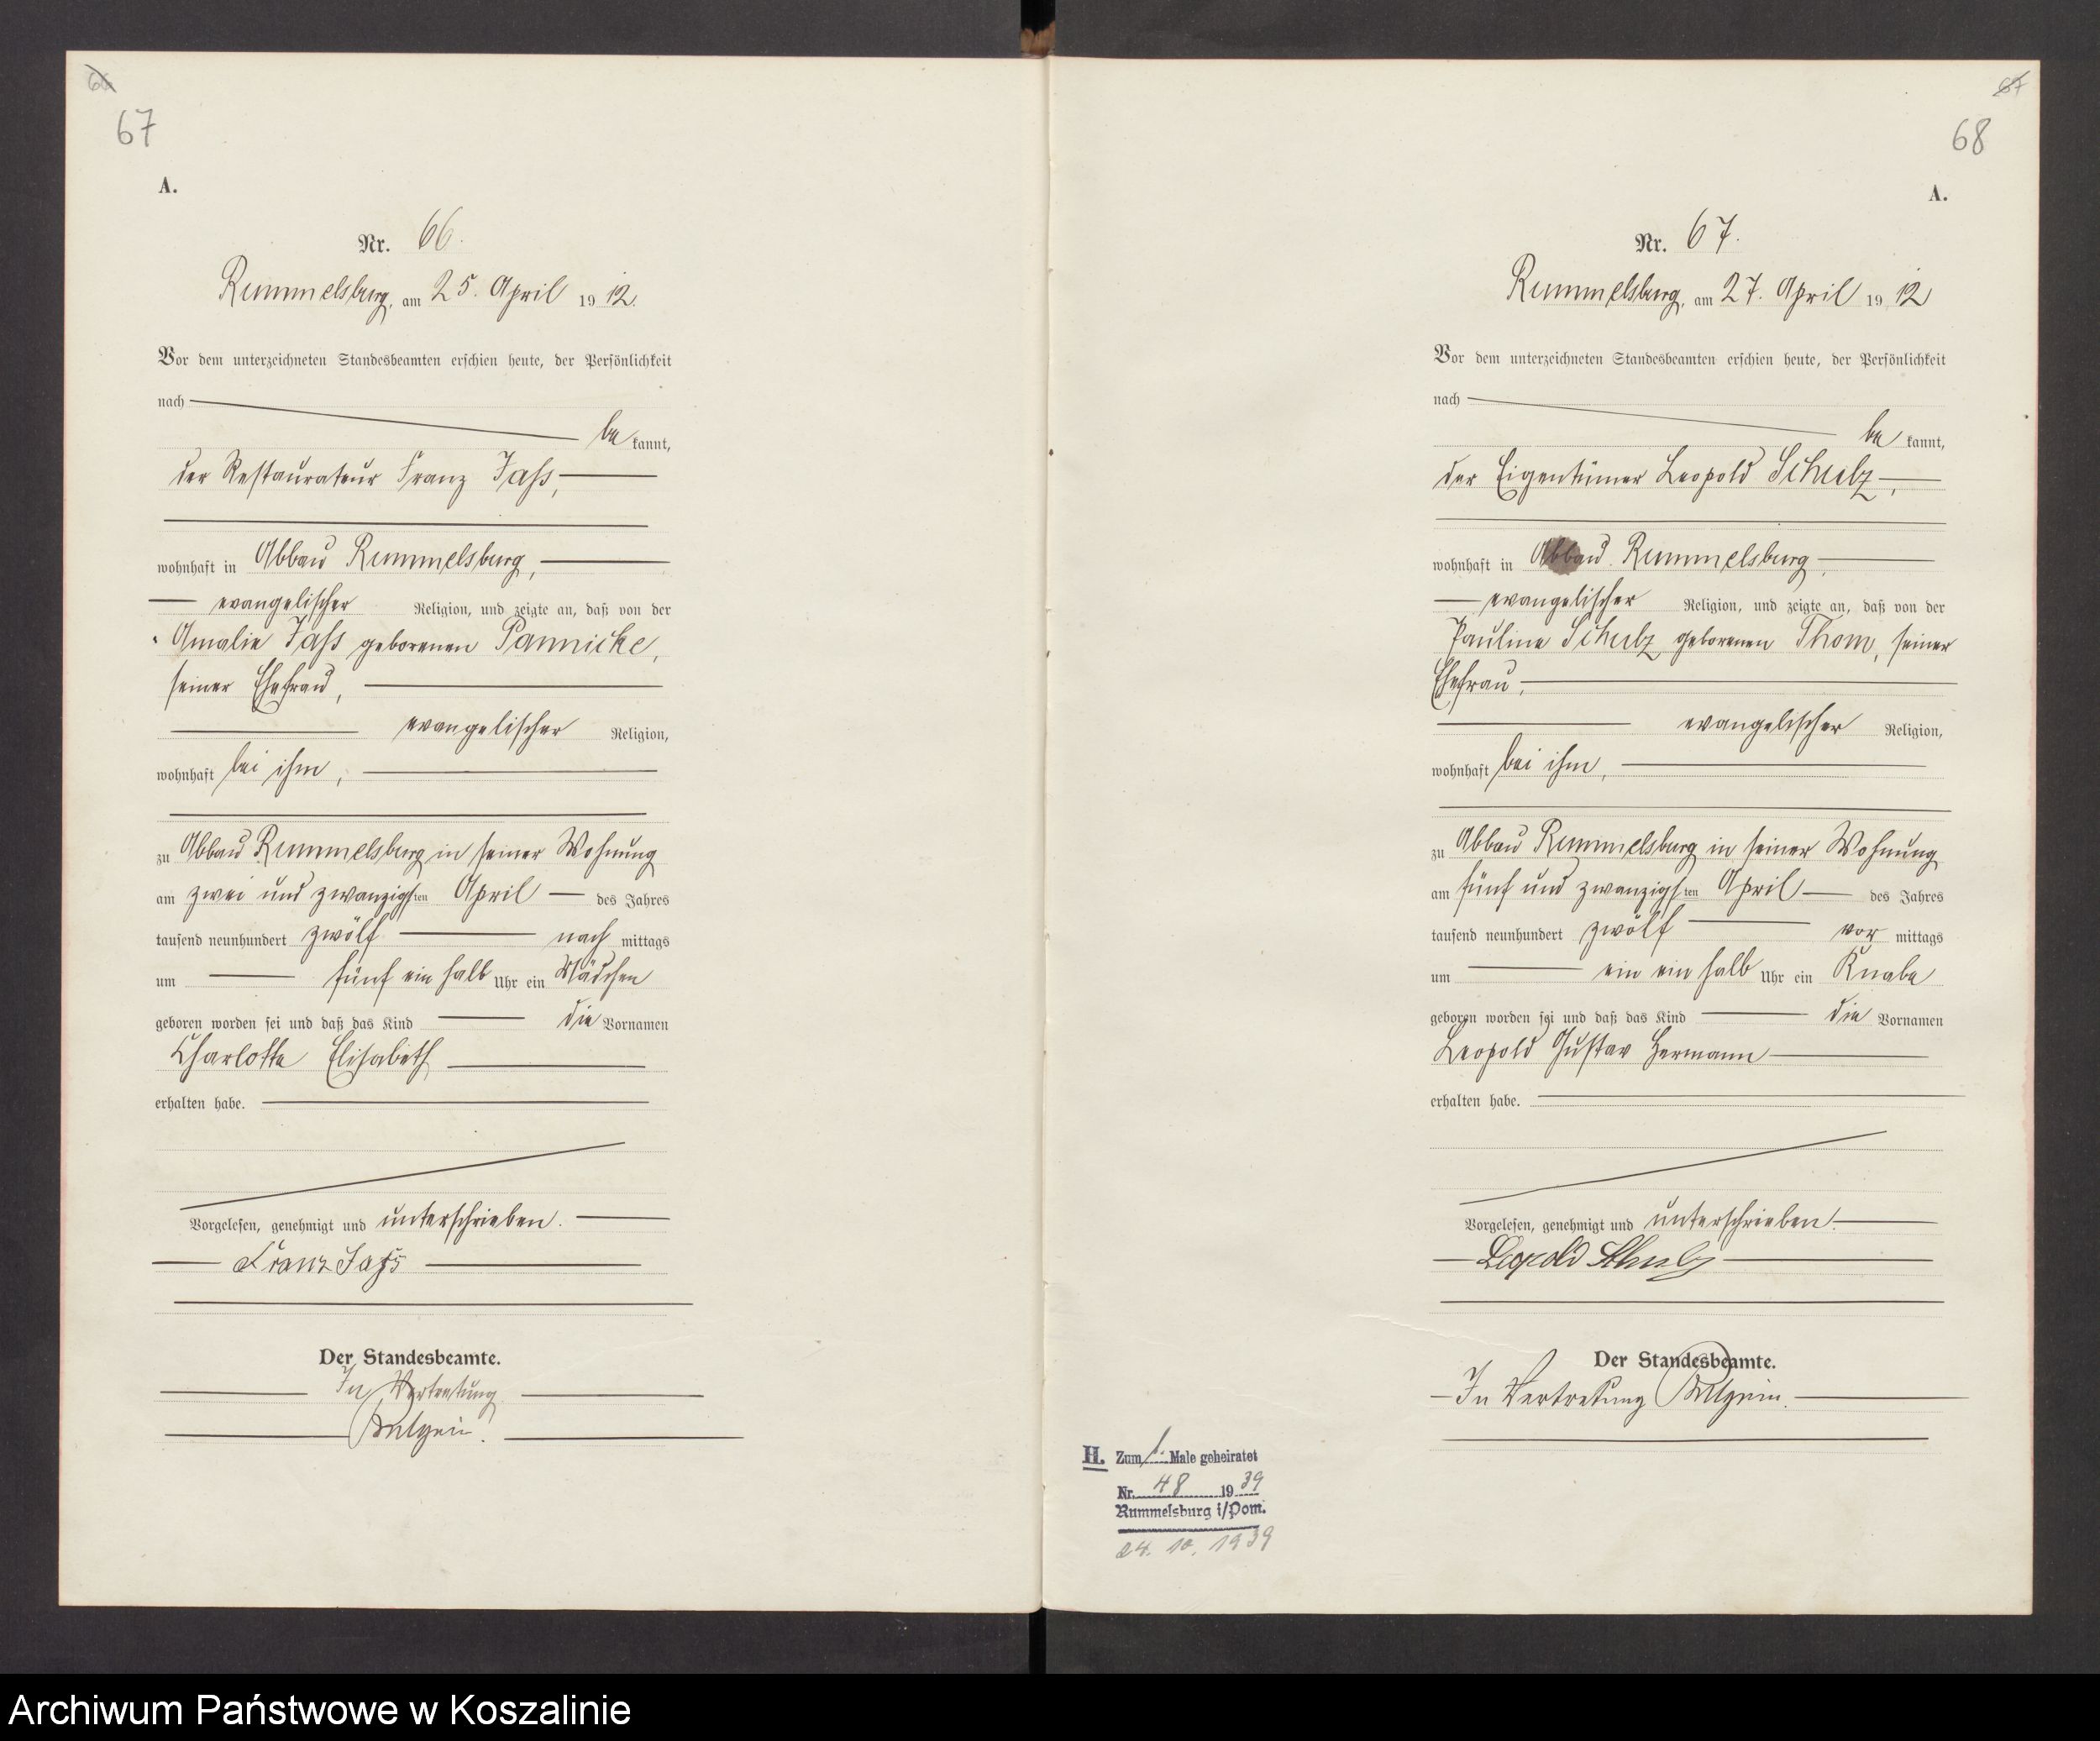 66
67
A.
Nr. 66.
Rummelsburg, am 25. April 1912.
Vor dem unterzeichneten Standesbeamten erschien heute, der Persönlichkeit
nach
be kannt,
der Restaurateur Franz Jass,
wohnhaft in Abbau Rummelsburg,
evangelischer Religion, und zeigte an, daß von der
Amalie Jass geborenen Pannicke,
seiner Ehefrau,
evangelischer Religion,
wohnhaft bei ihm,
zu Abbau Rummelsburg in seiner Wohnung
am zwei und zwanzigsten April des Jahres
tausend neunhundert zwölf nach mittags
um fünf ein halb Uhr ein Mädchen
geboren worden sei und daß das Kind die Vornamen
Charlotte Elisabeth
erhalten habe.
Vorgelesen, genehmigt und unterschrieben.
Franz Jass
Der Standesbeamte.
In Vertretung
67
68
A.
Nr. 67.
Rummelsburg, am 27. April 1912
Vor dem unterzeichneten Standesbeamten erschien heute, der Persönlichkeit
nach
be kannt,
der Eigentümer Leopold Schulz,
wohnhaft in Abbau Rummelsburg,
evangelischer Religion, und zeigte an, daß von der
Pauline Schulz geborenen Thom, seiner
Ehefrau,
evangelischer Religion,
wohnhaft bei ihm,
zu Abbau Rummelsburg in seiner Wohnung
am fünf und zwanzigsten April des Jahres
tausend neunhundert zwölf vor mittags
um ein ein halb Uhr ein Knabe
geboren worden sei und daß das Kind die Vornamen
Leopold Gustav Hermann
erhalten habe.
Vorgelesen, genehmigt und unterschrieben.
Leopold Schulz
Der Standesbeamte.
In Vertretung
H. Zum 1. Male geheiratet
Nr. 48 1939
Rummelsburg i/Pom.
24. 10. 1939
Archiwum Państwowe w Koszalinie